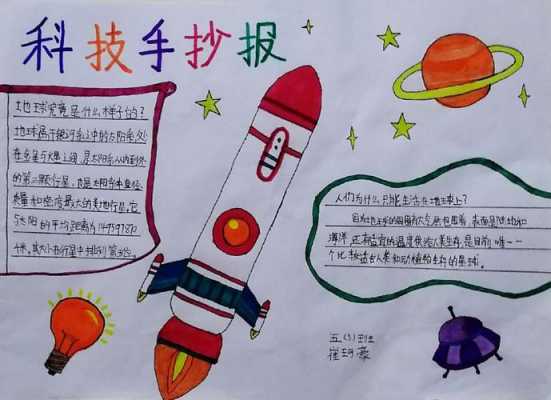 科技手抄报
地球究竟是什么样子的?
地球属于银河系之中的太阳系,处
在金星与火星之间,是太阳系从内到外
的第三颗行星,也是太阳系中直径、
质量和密度最大的类地行星。它
与太阳的平均距离为149597870
千米。其大小在行星中排列第
人们为什么只能生活在地球上?
因为地球的周围有大气层包围着,表面是陆地和
海洋,还有适宜的温度供给人类生存,是目前唯一一
个比较适合人类和动植物生存的星球。
五(5)班
崔 豪